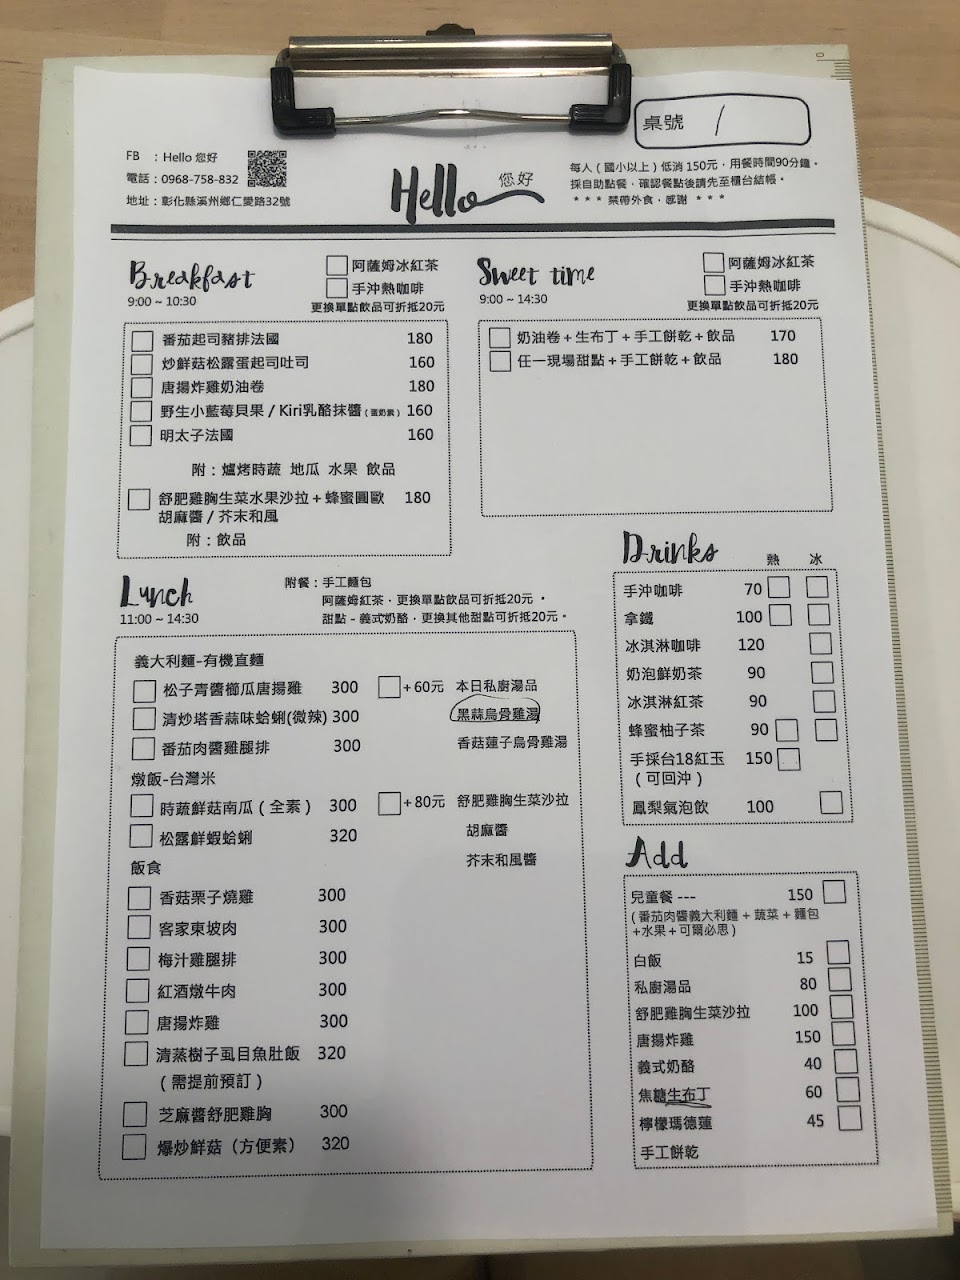 桌號 1
FB ：Hello 您好
電話：0968-758-832
地址：彰化縣溪州鄉仁愛路32號
Hello 您好
每人（國小以上）低消 150元，用餐時間90分鐘。
採自助點餐，確認餐點後請先至櫃台結帳。
* * * 禁帶外食，感謝 * * *
Breakfast
9:00 ~ 10:30
阿薩姆冰紅茶
手沖熱咖啡
更換單點飲品可折抵20元
番茄起司豬排法國 180
炒鮮菇松露蛋起司吐司 160
唐揚炸雞奶油卷 180
野生小藍莓貝果 / Kiri乳酪抹醬（蛋奶素） 160
明太子法國 160
附：爐烤時蔬 地瓜 水果 飲品
舒肥雞胸生菜水果沙拉＋蜂蜜圓歐 180
胡麻醬 / 芥末和風
附：飲品
Sweet time
9:00 ~ 14:30
阿薩姆冰紅茶
手沖熱咖啡
更換單點飲品可折抵20元
奶油卷＋生布丁＋手工餅乾＋飲品 170
任一現場甜點＋手工餅乾＋飲品 180
Lunch
11:00 ~ 14:30
附餐：手工麵包
阿薩姆紅茶，更換單點飲品可折抵20元。
甜點－義式奶酪，更換其他甜點可折抵20元。
義大利麵-有機直麵
松子青醬櫛瓜唐揚雞 300
清炒塔香蒜味蛤蜊(微辣) 300
番茄肉醬雞腿排 300
燉飯-台灣米
時蔬鮮菇南瓜（全素） 300
松露鮮蝦蛤蜊 320
飯食
香菇栗子燒雞 300
客家東坡肉 300
梅汁雞腿排 300
紅酒燉牛肉 300
唐揚炸雞 300
清蒸樹子虱目魚肚飯 320
（需提前預訂）
芝麻醬舒肥雞胸 300
爆炒鮮菇（方便素） 320
+60元 本日私廚湯品
黑蒜烏骨雞湯
香菇蓮子烏骨雞湯
+80元 舒肥雞胸生菜沙拉
胡麻醬
芥末和風醬
Drinks 熱 冰
手沖咖啡 70
拿鐵 100
冰淇淋咖啡 120
奶泡鮮奶茶 90
冰淇淋紅茶 90
蜂蜜柚子茶 90
手採台18紅玉 150
（可回沖）
鳳梨氣泡飲 100
Add
兒童餐 --- 150
（番茄肉醬義大利麵＋蔬菜＋麵包
+水果＋可爾必思）
白飯 15
私廚湯品 80
舒肥雞胸生菜沙拉 100
唐揚炸雞 150
義式奶酪 40
焦糖生布丁 60
檸檬瑪德蓮 45
手工餅乾